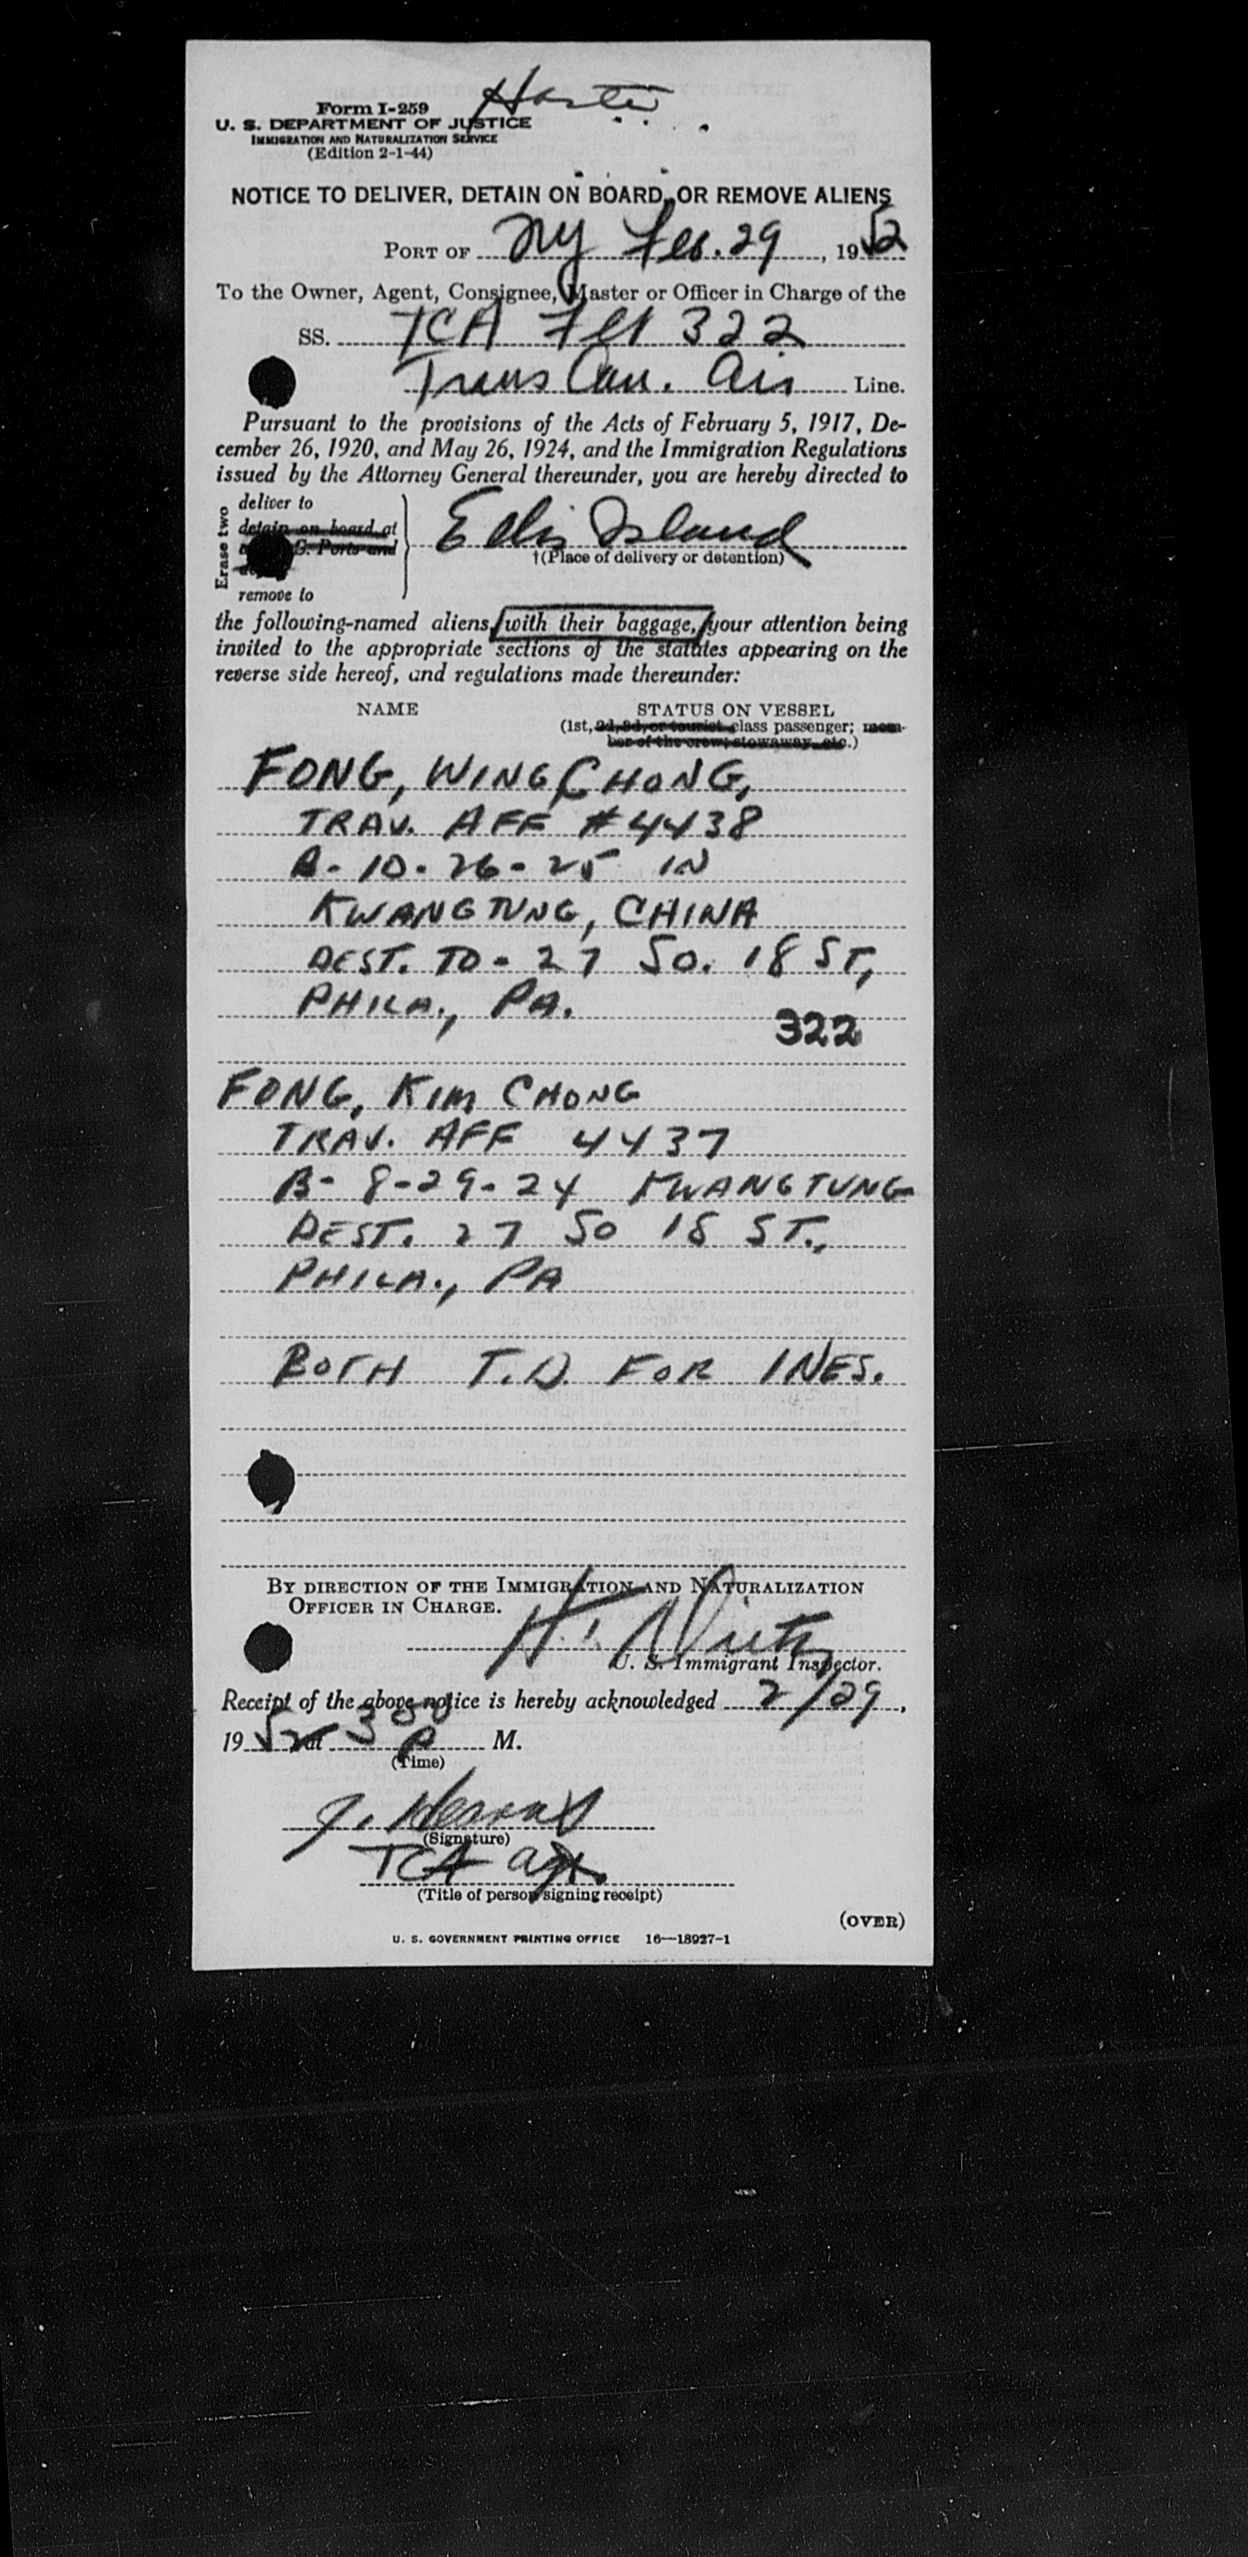 Form I-259
U. S. DEPARTMENT OF JUSTICE
IMMIGRATION AND NATURALIZATION SERVICE
(Edition 2-1-44)
NOTICE TO DELIVER, DETAIN ON BOARD, OR REMOVE ALIENS
PORT OF NY Feb. 29, 1952
To the Owner, Agent, Consignee, Master or Officer in Charge of the
SS. TCA Flt 322
Trans Can. Air Line.
Pursuant to the provisions of the Acts of February 5, 1917, De-
cember 26, 1920, and May 26, 1924, and the Immigration Regulations
issued by the Attorney General thereunder, you are hereby directed to
Erase two
deliver to
detain on board at
Ellis Island
†(Place of delivery or detention)
remove to
the following-named aliens, with their baggage, your attention being
invited to the appropriate sections of the statutes appearing on the
reverse side hereof, and regulations made thereunder:
NAME STATUS ON VESSEL
(1st, 2d, 3d, or tourist class passenger; mem-
ber of the crew; stowaway, etc.)
FONG, WING CHONG,
TRAV. AFF #4438
B- 10-26-25 IN
KWANGTUNG, CHINA
DEST. TO- 27 SO. 18 ST,
PHILA., PA.
322
FONG, KIM CHONG
TRAV. AFF 4437
B- 8-29-24 KWANGTUNG
DEST. 27 SO 18 ST.,
PHILA., PA
BOTH T.D. FOR INES.
BY DIRECTION OF THE IMMIGRATION AND NATURALIZATION
OFFICER IN CHARGE.
H.
U. S. Immigrant Inspector.
Receipt of the above notice is hereby acknowledged 2/29,
1952 at 3 00 P M.
(Time)
J.
(Signature)
TCA agt.
(Title of person signing receipt)
(OVER)
U. S. GOVERNMENT PRINTING OFFICE 16—18927-1